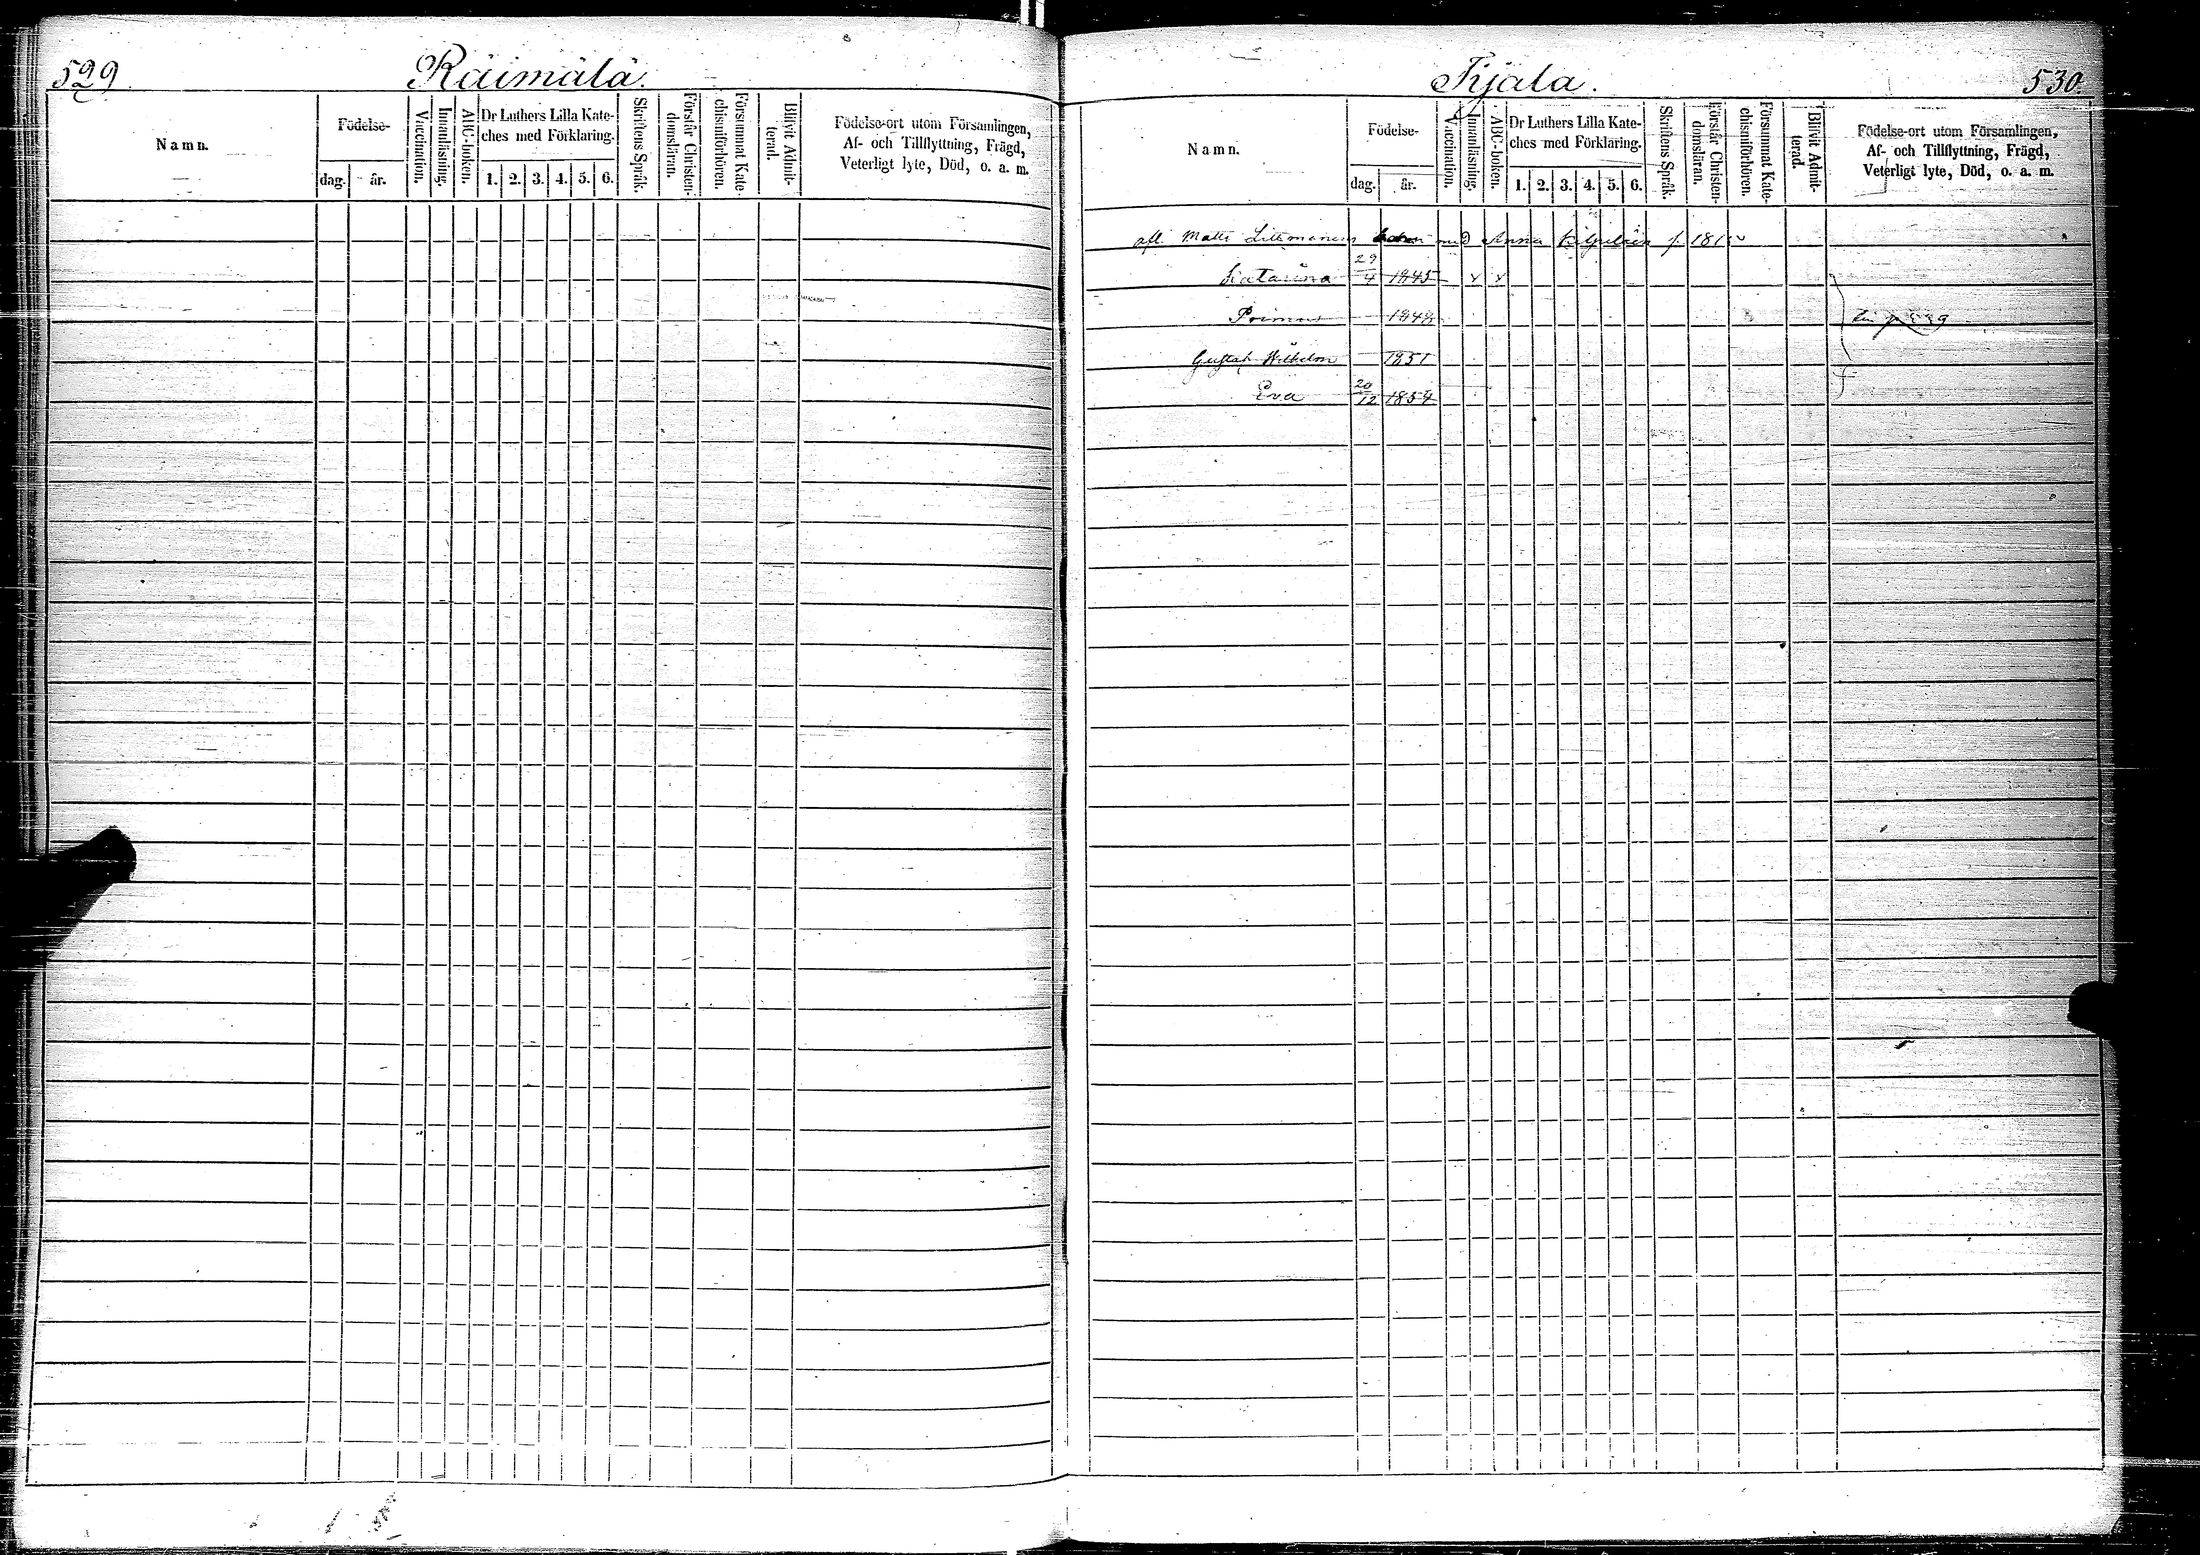 529.
Räimälä.
Namn.
Födelse-
dag.
år.
Vaccination.
Innanläsning.
ABC-boken.
Dr Luthers Lilla Kate-
ches med Förklaring.
1. 2. 3. 4. 5. 6.
Skriftens Språk.
Förstår Christen-
domsläran.
Försummat Kate-
chismiförhören.
Blifvit Admit-
terad.
Födelse-ort utom Församlingen,
Af- och Tillflyttning, Frägd,
Veterligt lyte, Död, o. a. m.
530.
Namn.
Födelse-
dag.
år.
Vaccination.
Innanläsning.
ABC-boken.
Dr Luthers Lilla Kate-
ches med Förklaring.
1. 2. 3. 4. 5. 6.
Skriftens Språk.
Förstår Christen-
domsläran.
Försummat Kate-
chismiförhören.
Blifvit Admit-
terad.
Födelse-ort utom Församlingen,
Af- och Tillflyttning, Frägd,
Veterligt lyte, Död, o. a. m.
afl. Matts Littmanens med Anna
Katarina 29/4 1845 x x
1848
Gustaf Wilhelm 1851
Eva 20/12 1854